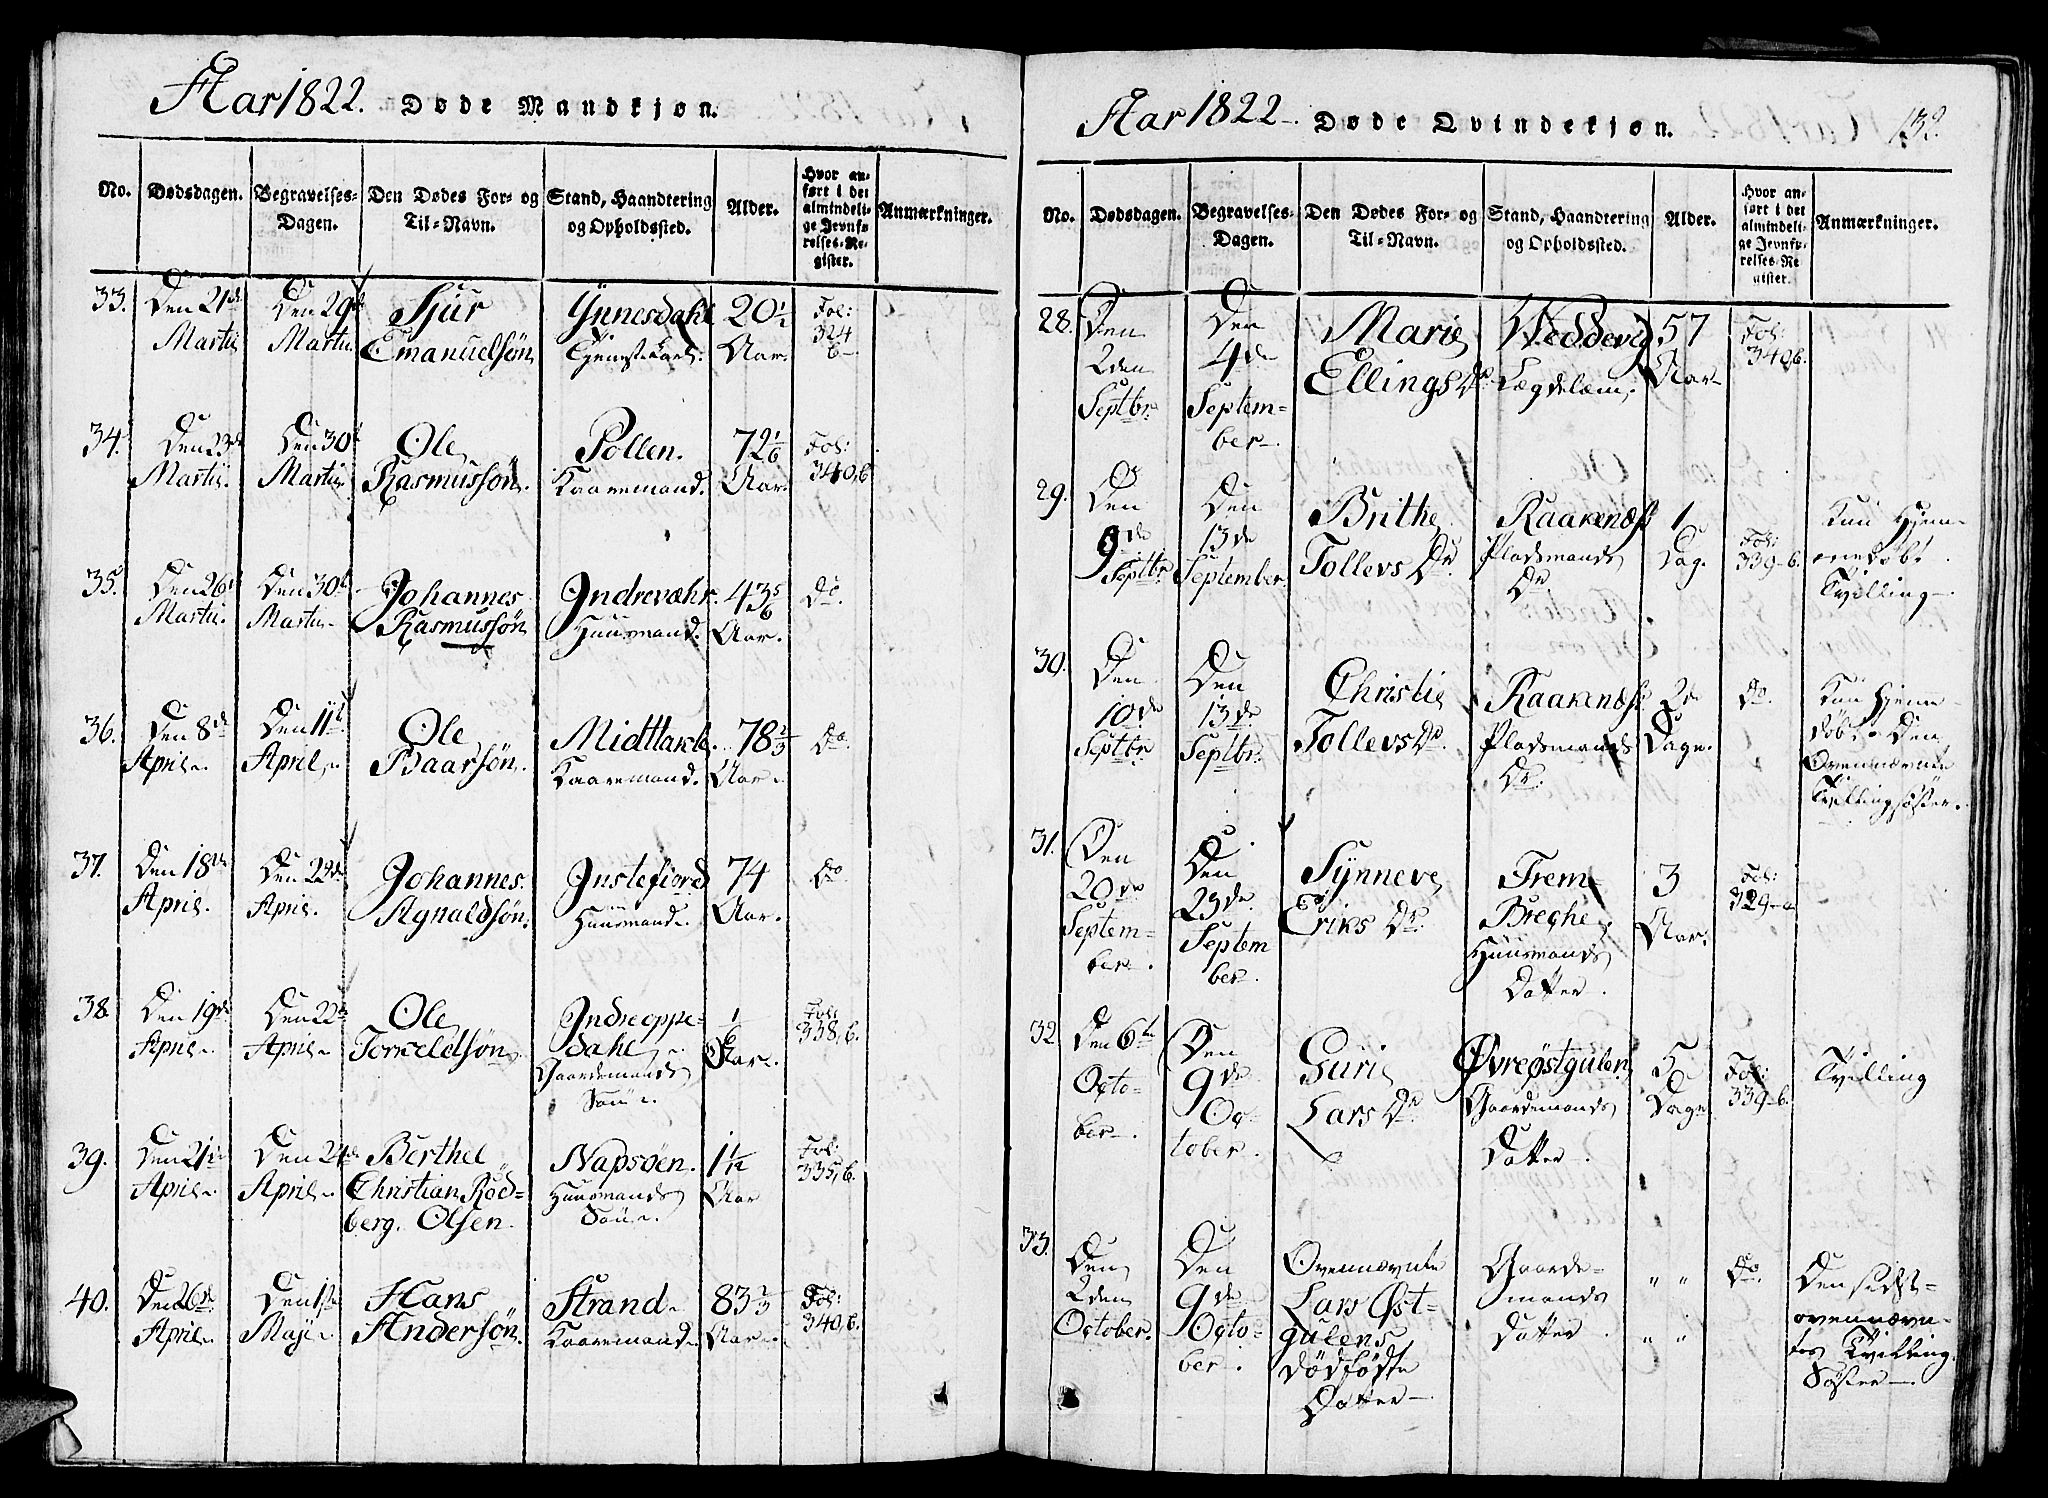 Aar 1822. Døde Mandkjøn.
No. Dødsdagen. Begravelses-Dagen. Den Dødes For- og Til-Navn. Stand, Haandtering og Opholdssted. Alder. Hvor anført i det almindelige Jevnførelses-Register. Anmærkninger.
33. Den 21de Martii Den 29de Martii Sjur Emanuelsøn Ynnesdahl Tjenestekarl. 20 1/2 Aar. Fol: 324 b
34. Den 23de Martii. Den 30te Martii Ole Rasmussøn. Pollen. Kaaremand. 72 1/6 Aar. Fol: 340,b
35. Den 26de Martii. Den 30te Martii Johannes Rasmussøn Indrevæhr. Huusmand. 43 5/6 Aar. Do.
36. Den 8de April Den 11te April Ole Baarsøn. Midttarle. Kaaremand. 78 2/3 Aar Do.
37. Den 18de April. Den 23de April. Johannes Agnaldsøn. Instefiord Huusmand 74 Aar. Do
38. Den 19de April Den 22de April Ole Torkeldsøn Indreoppedahl Gaardemands Søn 1/6 Aar. Fol: 338,b.
39. Den 21de April Den 24de April Berthel Christian Rødberg. Olsen. Napsøen. Huusmands Søn 1 1/12 Aar Fol: 335,b.
40. Den 26de April Den 1ste Maji Hans Andersøn. Strand Kaaremand 83 2/3 Aar Fol: 340,b.
Aar 1822 Døde Qvindekjøn. 132.
No. Dødsdagen. Begravelses-Dagen. Den Dødes For- og Til-Navn. Stand, Haandtering og Opholdssted. Alder. Hvor anført i det almindelige Jevnførelses-Register. Anmærkninger.
28. Den 2den Septbr. Den 4de September Marie Ellings Dr. Weddevig Lægdelem. 57 Aar Fol: 340,b.
29. Den 9de Septbr. Den 13de September. Brithe Tollevs Dr. Raakenæs Pladsmands Dr 1 Dag. Fol: 339-b. Kun Hjemmedøbt. Tvilling.
30. Den 10de Septbr Den 13de Septbr. Christie Tollevs Dr. Raakenæs Pladsmands Dr. 2 Dage. Do. Kun Hjemmedøbt Den Ovennævnte Tvillingsøster.
31. Den 20de September. Den 23de September. Synneve Eriks Dr. Frem-Breche Huusmands Datter. 3 Aar. Fol: 329-a
32. Den 6te October. Den 9de October. Guri Lars Dr. Øvreøstgulen Gaardemands Datter. 5 Dage Fol: 339-b. Tvilling
33. Den 2den October. Den 9de October. Ovennævnte Lars Østgulens dødfødte Datter Gaardemands Datter. " " " " Do. Den sidstovennævntes Tvilling Søster.